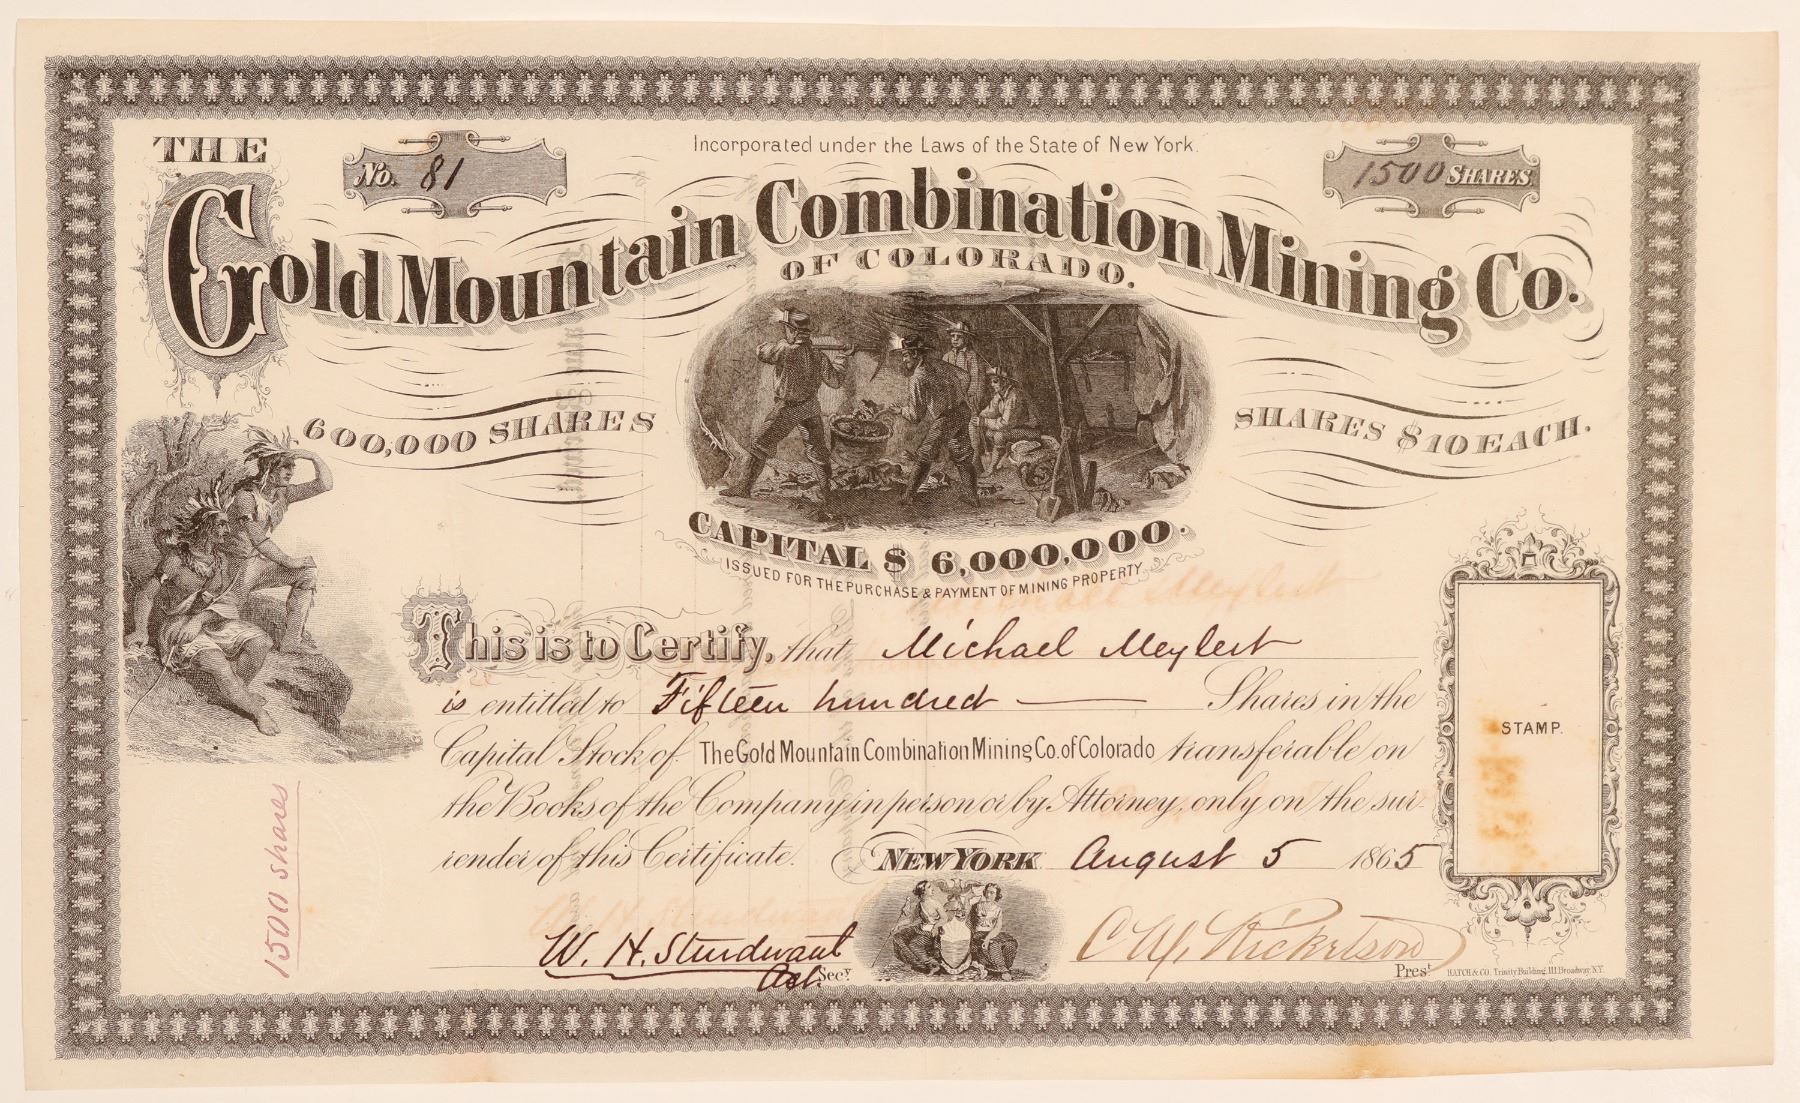 Incorporated under the Laws of the State of New York.
No. 81
1500 SHARES.
THE
Gold Mountain Combination Mining Co.
OF COLORADO.
600,000 SHARES
SHARES $10 EACH.
CAPITAL $ 6,000,000.
ISSUED FOR THE PURCHASE & PAYMENT OF MINING PROPERTY
This is to Certify, that Michael Meylert
is entitled to Fifteen hundred Shares in the
Capital Stock of The Gold Mountain Combination Mining Co. of Colorado transferable on
the Books of the Company in person or by Attorney, only on the sur-
render of this Certificate.
NEW YORK August 5 1865
STAMP.
1500 shares
W. H. Sturdwant
Act. Secy.
Prest.
HATCH & CO. Trinity Building, 111 Broadway, N.Y.